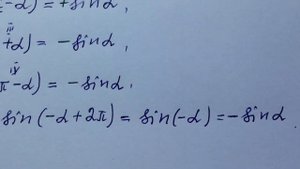 π-α) = + sin α,
III
+α) = - sin α,
IV
π-α) = - sin α.
sin (-α + 2π) = sin (-α) = - sin α.